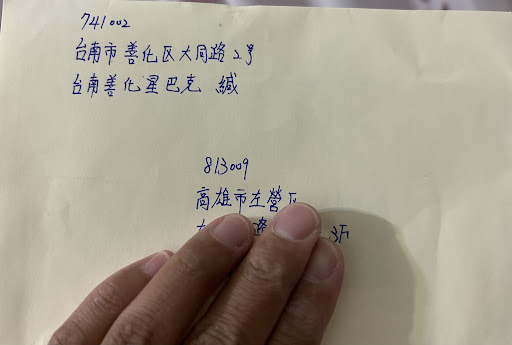 741002
台南市善化区大同路2号
台南善化星巴克 緘
813009
高雄市左營区
路 3F